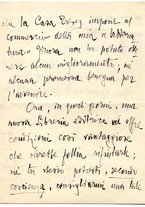 che la Casa Treves impone al
commercio della mia "letteratura
tura". Finora non ho potuto otte
nere alcun miglioramento, né
alcuna promessa benigna per
l'avvenire.
Ora, in questi giorni, una
nuova Libreria editrice mi offre
condizioni così vantaggiose
che sarebbe follia rifiutarle;
né tu stesso potresti, secondo
coscienza, consigliarmi una tale